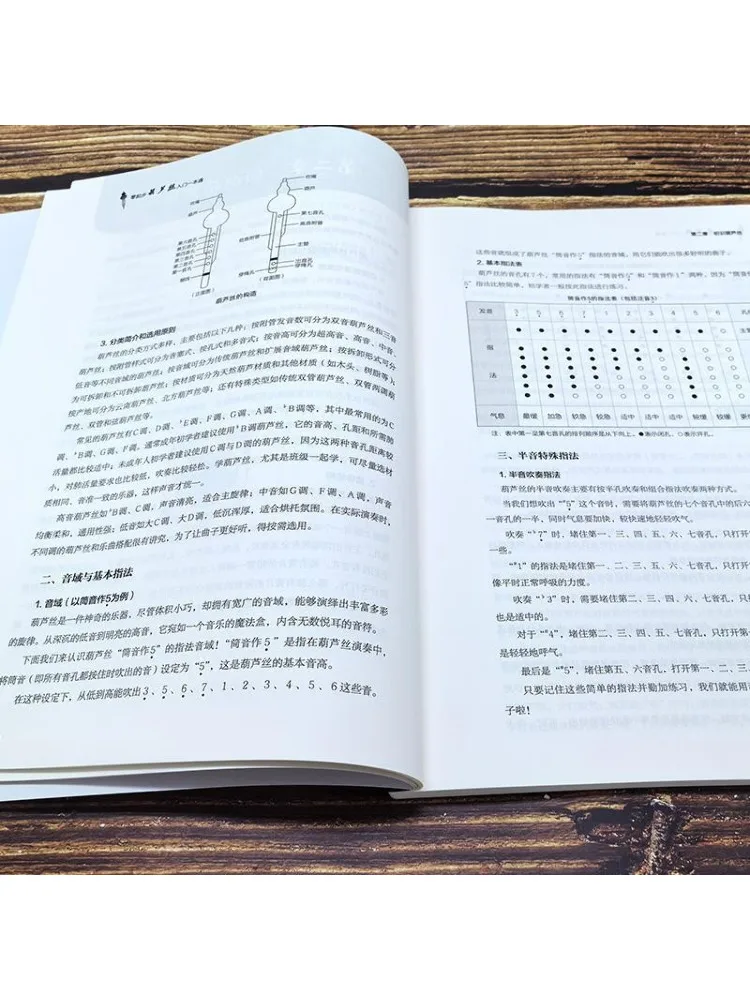 零起步葫芦丝入门一本通
吹嘴
葫芦
第六音孔
第五音孔
第四音孔
第三音孔
第二音孔
第一音孔
穿绳孔
(正面图)
吹嘴
葫芦
第七音孔
高音附管
主管
低音附管
出音孔
穿绳孔
(背面图)
葫芦丝的构造
3. 分类简介和选用原则
葫芦丝的分类方式多样,主要包括以下几种:按附管发音数可分为双音葫芦丝和三音
葫芦丝;按附管样式可分为音塞式、按孔式和多音式;按音高可分为超高音、高音、中音、
低音等不同音域的葫芦丝;按音域可分为传统葫芦丝和扩展音域葫芦丝;按拆卸形式可分
为可拆卸和不可拆卸葫芦丝;按材质可分为天然葫芦材质和其他材质(如木头、树脂等);
按产地可分为云南葫芦丝、北方葫芦丝等;还有特殊类型如传统双管葫芦丝、双管两调葫
芦丝、双管和弦葫芦丝等。
常见的葫芦丝有C调、D调、♭E调、F调、G调、A调、♭B调等,其中最常用的为C
调、♭B调、G调、F调。通常成年初学者建议使用♭B调葫芦丝,它的音高、孔距和所需肺
活量都比较适中;未成年人初学者建议使用C调与D调的葫芦丝,因为这两种音孔距离较
小,对肺活量要求也比较低,吹奏比较轻松。学葫芦丝,尤其是班级一起学,可尽量选材
质相同、音准一致的乐器,这样声音才统一。
高音葫芦丝如♭B调、C调,声音清亮,适合主旋律;中音如G调、F调、A调,声音
均衡柔和,通用性强;低音如大C调、大D调,低沉浑厚,适合烘托氛围。在实际演奏时,
不同调的葫芦丝和乐曲搭配很有讲究,为了让曲子更好听,得按需选用。
二、音域与基本指法
1. 音域(以筒音作5̣为例)
葫芦丝是一件神奇的乐器,尽管体积小巧,却拥有宽广的音域,能够演绎出丰富多彩
的旋律。从深沉的低音到明亮的高音,它宛如一个音乐的魔法盒,内含无数悦耳的音符。
下面我们来认识葫芦丝“筒音作5̣”的指法音域!“筒音作5̣”是指在葫芦丝演奏中,
将筒音(即所有音孔都按住时吹出的音)设定为“5̣”,这是葫芦丝的基本音高。
在这种设定下,从低到高能吹出3̣、5̣、6̣、7̣、1、2、3、4、5、6这些音。
第二章 初识葫芦丝
这些音就组成了葫芦丝“筒音作5̣”指法的音域,用它们能吹出很多好听的曲子!
2. 基本指法表
葫芦丝的音孔有7个,常用的指法有“筒音作5̣”和“筒音作1”两种,因为“筒音
指法比较简单,初学者一般按此指法进行练习。
筒音作5̣的指法表(包括泛音3̣)
发音 3̣ 5̣ 6̣ 7̣ 1 2 3 4 5 6
指 ● ● ● ● ● ● ●
法
气息 最缓 加急 较急 较急 适中 适中 适中 较慢 较缓
注:表中第一至第七孔的排列顺序是从下向上。●表示闭孔,○表示开孔。
三、半音特殊指法
1. 半音吹奏指法
葫芦丝的半音吹奏主要有按半孔吹奏和组合指法吹奏两种方式。
当我们想吹出“♯5̣”这个音时,需要将葫芦丝的七个音孔中的后六
一音孔的一半,同时气息要加快,较快速地轻轻吹气。
吹奏“♭7̣”时,堵住第一、三、四、五、六、七音孔,只打开
一些。
“♯1”的指法是堵住第一、二、四、五、六、七音孔,只打开
像平时正常呼吸的力度。
吹奏“♭3”时,需要堵住第二、三、四、五、六、七音孔,只打
也是适中的。
对于“♯4”,堵住第二、三、四、五、七音孔,只打开第一、
是轻轻地呼气。
最后是“♯5”,堵住第五、六音孔,打开第一、二、三、四、
只要记住这些简单的指法并勤加练习,我们就能用葫
子啦!